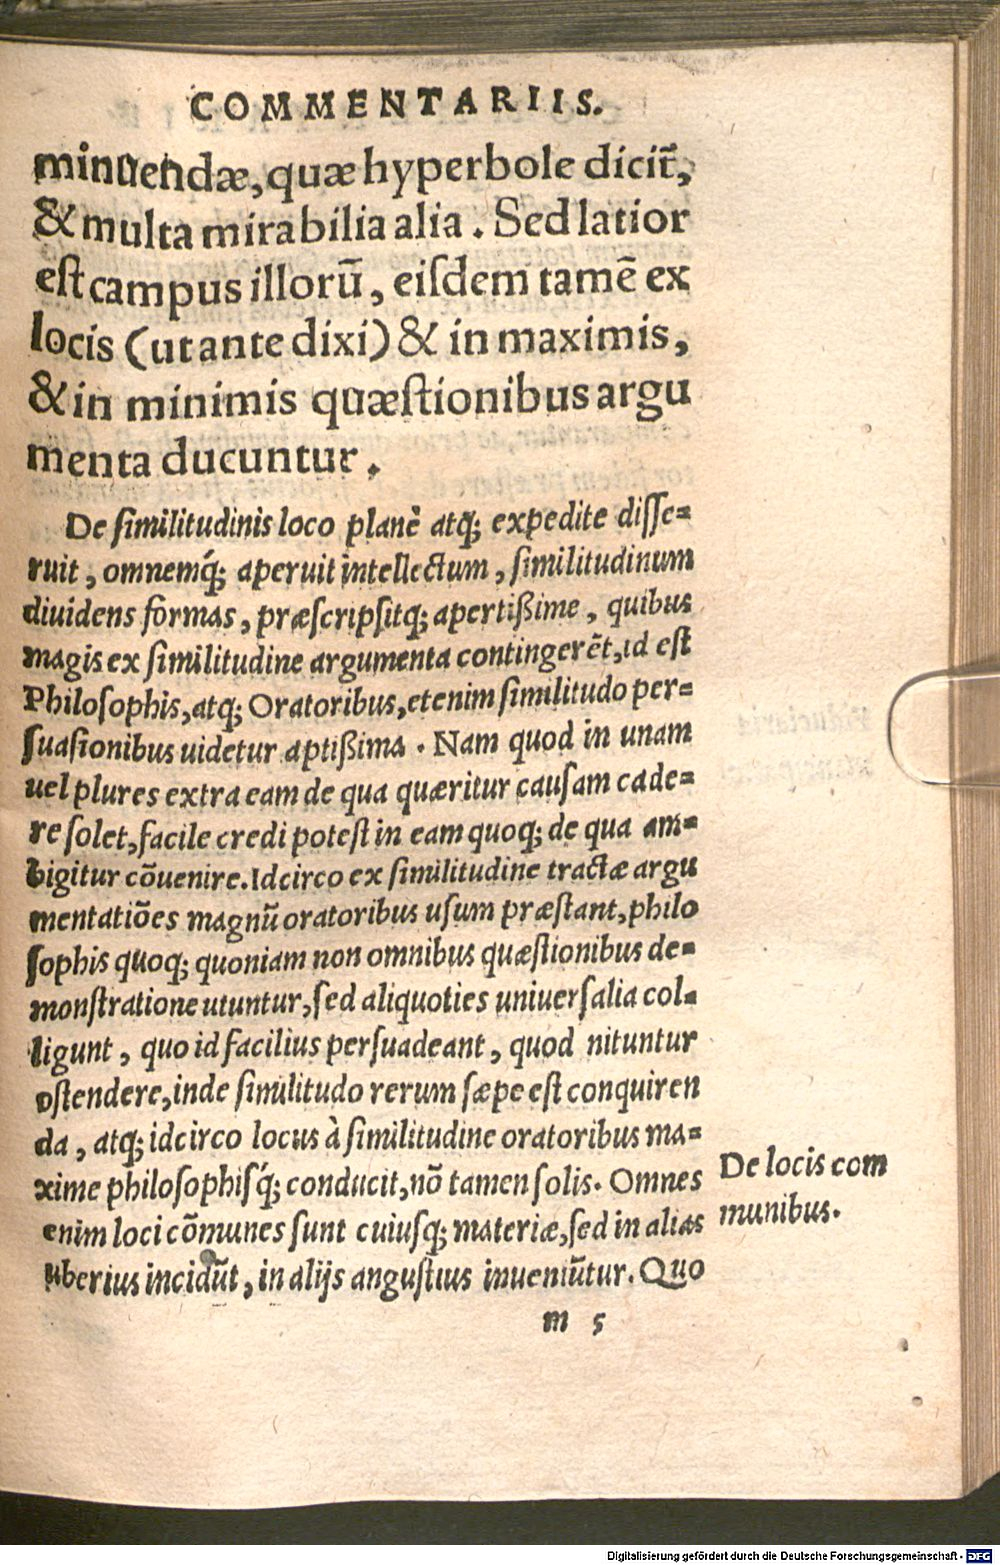 COMMENTARIIS.
minuendæ, quæ hyperbole dicit̃,
& multa mirabilia alia. Sed latior
eſt campus illorũ, eiſdem tamẽ ex
locis (ut ante dixi) & in maximis,
& in minimis quæſtionibus argu
menta ducuntur.
De ſimilitudinis loco planè atq; expedite diſſe=
ruit, omnemq́; aperuit intellectum, ſimilitudinum
diuidens formas, præſcripſitq; apertißime, quibus
magis ex ſimilitudine argumenta contingerẽt, id eſt
Philoſophis, atq; Oratoribus, etenim ſimilitudo per=
ſuaſionibus uidetur aptißima. Nam quod in unam
uel plures extra eam de qua quæritur cauſam cade=
re ſolet, facile credi poteſt in eam quoq; de qua am=
bigitur cõuenire. Idcirco ex ſimilitudine tractæ argu
mentatiões magnũ oratoribus uſum præſtant, philo
ſophis quoq; quoniam non omnibus quæſtionibus de=
monſtratione utuntur, ſed aliquoties uniuerſalia col=
ligunt, quo id facilius perſuadeant, quod nituntur
oſtendere, inde ſimilitudo rerum ſæpe eſt conquiren
da, atq; idcirco locus à ſimilitudine oratoribus ma=
xime philoſophiſq́; conducit, nõ tamen ſolis. Omnes
enim loci cõmunes ſunt cuiuſq; materiæ, ſed in alias
uberius incidũt, in alijs anguſtius inueniũtur. Quo
De locis com
munibus.
m 5
Digitalisierung gefördert durch die Deutsche Forschungsgemeinschaft - DFG